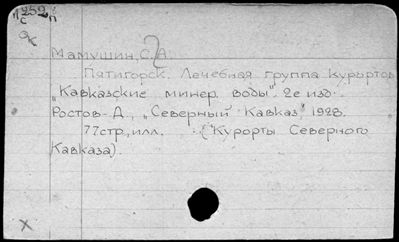 252
Мамушин, С. А.
Пятигорск. Лечебная группа курортов
"Кавказские минер. воды". 2е изд.
Ростов-Д., "Северный Кавказ" 1928.
77стр., илл. ("Курорты Северного
Кавказа).